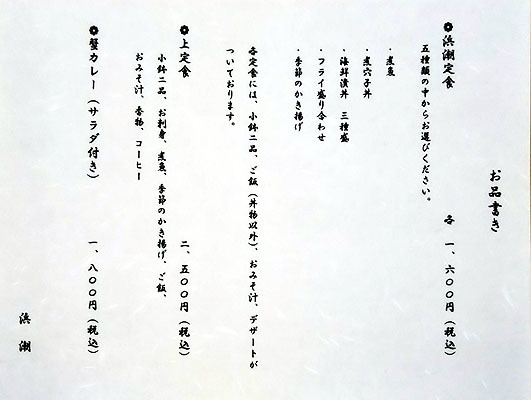 お品書き
❁浜潮定食　各　一、六〇〇円（税込）
五種類の中からお選びください。
・煮魚
・煮穴子丼
・海鮮漬丼　三種盛
・フライ盛り合わせ
・季節のかき揚げ
各定食には、小鉢二品、ご飯（丼物以外）、おみそ汁、デザートが
ついております。
❁上定食　二、五〇〇円（税込）
小鉢二品、お刺身、煮魚、季節のかき揚げ、ご飯、
おみそ汁、香物、コーヒー
❁蟹カレー（サラダ付き）　一、八〇〇円（税込）
浜潮